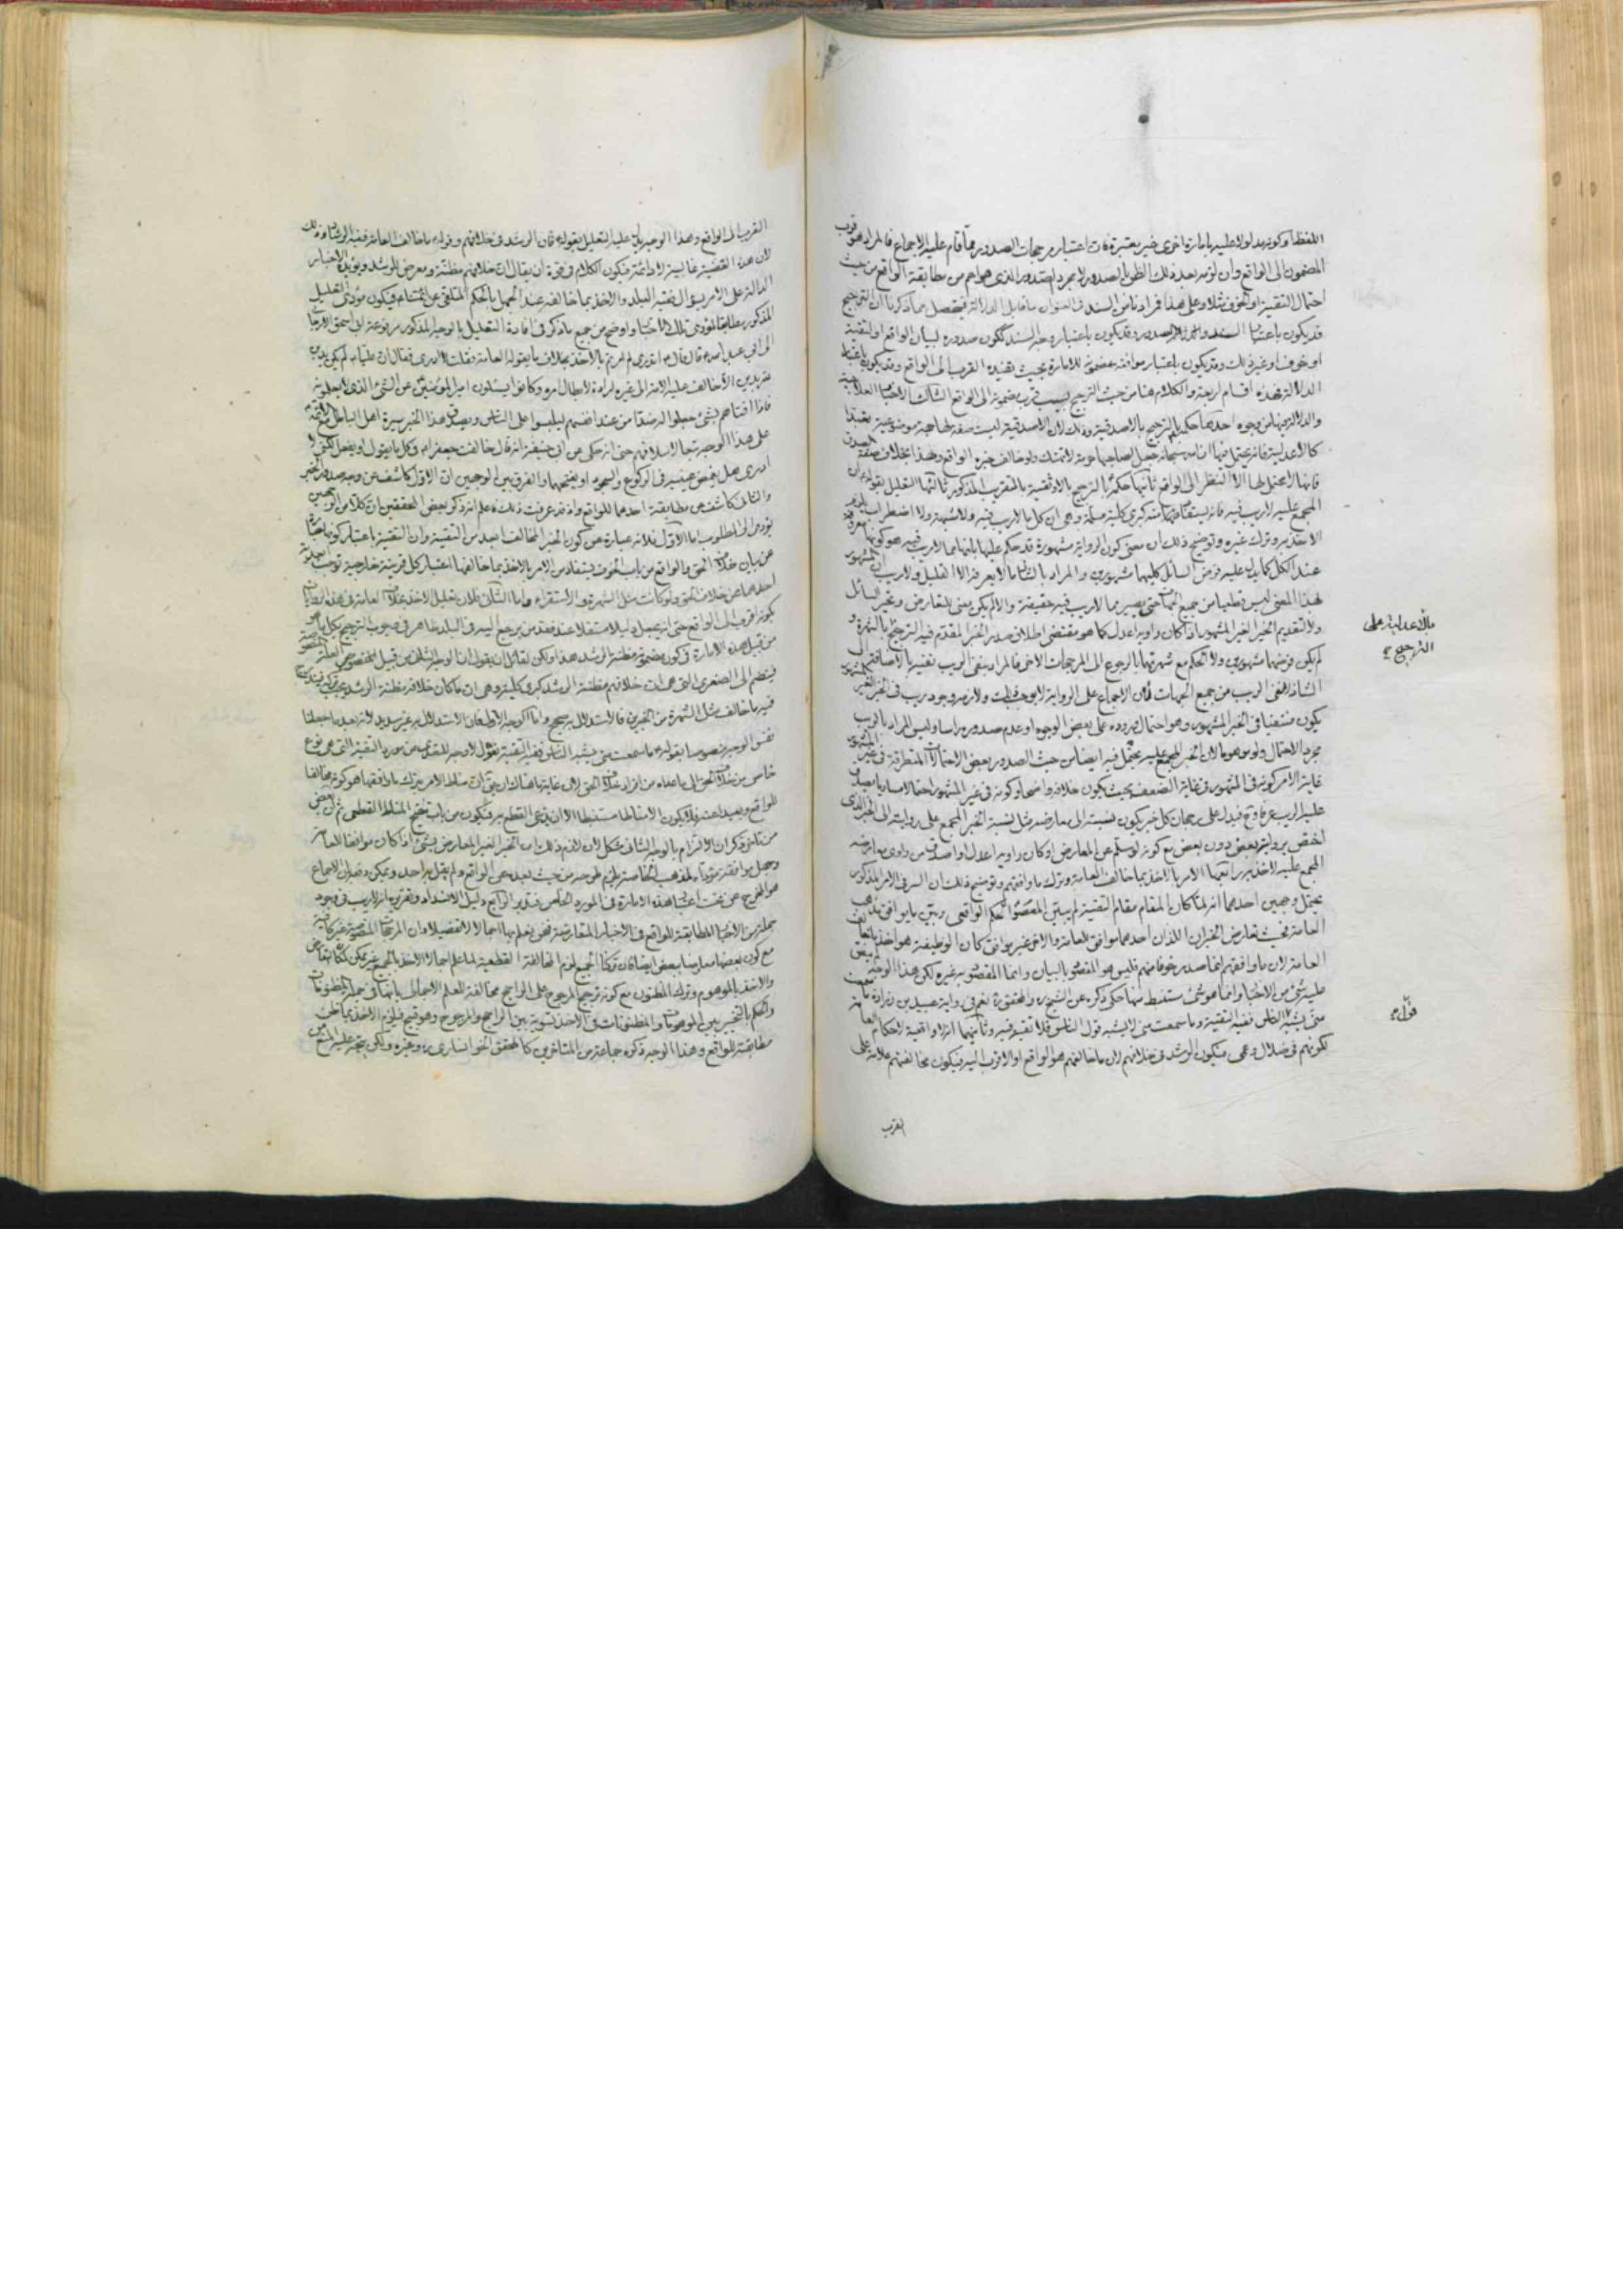 اللفظ او كونه مدلولا عليه بامارة اخرى غير معتبرة فان اعتبار مرجحات الصدور مما قام عليه الاجماع فالمراد هو قرب
المضمون الى الواقع وان لزمه بعد ذلك الظن بالصدور لا مجرد الصدور الذى هو اعم من مطابقة الواقع من حيث
احتمال التقية او الخوف مثلا وعلى هذا فمرادنا من السند فى العنوان ما قابل الدلالة فيتحصل مما ذكرنا ان الترجيح
قد يكون باعتبار الصدور وقد يكون باعتبار وجه السند ككون صدوره لبيان الواقع او لتقية
او خوف او غير ذلك وقد يكون باعتبار موافقة مضمونه للامارة بحيث تفيده القرب الى الواقع وقد يكون باعتبار
الدلالة فهذه اقسام اربعة والكلام هنا من حيث الترجيح بسبب قرب مضمونه الى الواقع الثالث الاخبار العلاجية
والدلالة فيها من وجوه احدها حكمه بالترجيح بالاصدقية وذلك لان الاصدقية ليست صفة لها جهة موضوعية تعبدا
كالاعدلية فانه يحتمل فيها ان الله سبحانه جعل لصاحبها حرمة لا تهتك ولو خالف خبره الواقع وهذا بخلاف صفة الصدق
فانها لا يحتمل لها الا النظر الى الواقع ثانيها حكمه بالترجيح بالاوثقية بالتقريب المذكور ثالثها التعليل بقوله فان
المجمع عليه لا ريب فيه فانه يستفاد منه كبرى كلية مسلمة وهى ان كل ما لا ريب فيه ولا شبهة ولا اضطراب يلزم
الاخذ به وترك غيره وتوضيح ذلك ان معنى كون الرواية مشهورة قد حكم عليها بانها مما لا ريب فيه هو كونها معروفة
عند الكل كما يدل عليه فرض السائل كليهما مشهورين والمراد بالشاذ ما لا يعرفه الا القليل ولا ريب ان المشهور
بهذا المعنى ليس قطعيا من جميع الجهات حتى يصير مما لا ريب فيه حقيقة والا لم يكن معنى للتعارض وتحير السائل
ولا لتقديم الخبر الغير المشهور اذا كان راويه اعدل كما هو مقتضى اطلاق صدر الخبر المقدم فيه الترجيح بالشهرة و
لم يكن فرضهما مشهورين ولا الحكم مع شهرتهما بالرجوع الى المرجحات الاخر فالمراد بنفى الريب نفيه بالاضافة الى
يكون منتفيا فى الخبر المشهور وهو احتمال وروده على بعض الوجوه او عدم صدوره راسا وليس المراد بالريب
مجرد الاحتمال ولو موهوما لان الخبر المجمع عليه يحتمل فيه ايضا من حيث الصدور بعض الاحتمالات المتطرقة فى غير المشهور
غاية الامر كونه فى المشهور فى غاية الضعف بحيث يكون خلافه واضحا وكونه فى غير المشهور احتمالا مساويا يصدق
عليه الريب عرفا وح فيدل على رجحان كل خبر يكون نسبته الى معارضه مثل نسبة الخبر المجمع على روايته الى الخبر الذى
اختص بروايته بعض دون بعض مع كونه لو سلم عن المعارض او كان راويه اعدل او اصدق من راوى معارضه
المجمع عليه لاخذ به رابعها الامر بالاخذ بما خالف العامة وترك ما وافقهم وتوضيح ذلك ان السر فى الامر المذكور
يحتمل وجهين احدهما انه لما كان المقام مقام التقية لم يبين المعصوم الحكم الواقعى وبين ما يوافق مذهب
العامة فحيث تعارض الخبران اللذان احدهما موافق للعامة والاخر غير موافق كان الوظيفة هو اخذ ما خالف
العامة لان ما وافقهم انما صدر خوفا منهم فليس هو المقصود بالبيان وانما المقصود به غيره لكن هذا الوجه لم ينص
عليه شئ من الاخبار وانما هو شئ مستنبط منها حكى ذكره عن الشيخ والمحقق ره نعم فى رواية عبيد بن زرارة ما سمعت
منى يشبه قول الناس ففيه التقية وما سمعت منى لا يشبه قول الناس فلا تقية فيه وثانيهما انه لا واقعية لاحكام العامة
لكونهم فى ضلال وعمى فيكون الرشد فى خلافهم لان ما خالفهم هو الواقع او الاقرب اليه فيكون مخالفتهم علامة على
القرب
بالاعدلية على
الترجيح
القرب الى الواقع وهذا الوجه يدل عليه التعليل بقوله فان الرشد فى خلافهم وقوله ما خالف العامة ففيه الرشاد وذلك
لان هذه القضية غالبية لا دائمة فيكون الكلام فى قوة ان يقال ان خلافهم مظنة ومعرض للرشد ويؤيده الاخبار
الدالة على الامر بسؤال فقيه البلد والاخذ بما خالفه عند الجهل بالحكم المتلقى عن ائمتنا فيكون مؤدى التعليل
المذكور مطابقا لمؤدى تلك الاخبار واوضح من جميع ما ذكر فى افادة التعليل بالوجه المذكور مرفوعة ابى اسحق الارجانى
الى ابى عبد الله قال قال اتدرى لم امرتم بالاخذ بخلاف ما يقوله العامة فقلت لا ادرى فقال ان عليا لم يكن يدين
الله بدين الا خالف عليه الامة الى غيره ارادة لابطال امره وكانوا يسئلون امير المؤمنين عن الشئ الذى لا يعلمونه
فاذا افتاهم بشئ جعلوا له ضدا من عند انفسهم ليلبسوا على الناس ويصدق هذا الخبر سيرة اهل الباطل مع الائمة
على هذا الوجه تبعا لاسلافهم حتى انه حكى عن ابى حنيفة انه قال خالفت جعفرا فى كل ما يقول او يفعل لكنى لا
ادرى هل يغمض عينيه فى الركوع والسجود او يفتحهما والفرق بين الوجهين ان الاول كاشف عن وجه صدور الخبر
والثانى كاشف عن مطابقة احدهما للواقع واذ قد عرفت ذلك فاعلم انه ذكر بعض المحققين ان كلا من الوجهين
يؤدى الى المطلوب اما الاول فلانه عبارة عن كون الخبر المخالف ابعد من التقية وان التقية باعتبار كونها عبارة
عن بيان خلاف الحق والواقع من باب الخوف يستفاد من الامر بالاخذ بما خالفها اعتبار كل قرينة خارجية توجب ابعدية
احدهما عن خلاف الحق ولو كانت مثل الشهرة والاستقراء واما الثانى فلان تعليل الاخذ بخلاف العامة فى هذه الروايات
بكونه اقرب الى الواقع حتى انه يجعل دليلا مستقلا عند فقد من يرجع اليه فى البلد ظاهر فى وجوب الترجيح بكل ما هو
من قبيل هذه الامارة فى كون مضمونه مظنة الرشد هذا ولكن لقائل ان يقول ان الوجه الثانى من قبيل المنصوص العلة
فينضم الى الصغرى التى هى ان خلافهم مظنة الرشد كبرى كلية وهى ان ما كان خلافه مظنة الرشد
فيه ما خالف مثل الشهرة من الخبرين فالاستدلال به صحيح واما الوجه الاول فان الاستدلال به غير سديد لانه بعد ما جعلنا
نفس الوجه منصوصا بقوله ما سمعت منى يشبه قول الناس ففيه التقية نقول لا وجه للتعدى من مورد التقية التى هى نوع
خاص من خلاف الحق الى ما عداه من افراد خلاف الحق لان غاية ما هناك ان يقال ان مناط الامر بترك ما وافقها هو كونه مخالفا
للواقع وبعيدا عنه فلا يكون الا مناطا مستنبطا الا ان يدعى القطع به فيكون من باب تنقيح المناط القطعى ثم ان بعض
من تاخر ذكر ان الالتزام بالوجه الثانى مشكل لان لازم ذلك ان الخبر الغير المعارض بشئ اذا كان موافقا للعامة
وجعل موافقة مؤداه لمذهب الخاصة لزم طرحه من حيث بعده عن الواقع ولم يقل به احد ويمكن دفعه بان الاجماع
هو المخرج عن تحت اعتبار هذه الامارة فى المورد الخاص فتدبر الرابع دليل الانسداد وتقريره انه لا ريب فى وجود
جملة من الاخبار المطابقة للواقع فى الاخبار المتعارضة فنحن نعلم بها اجمالا لا تفصيلا وان المرجحات المنصوصة غير كافية
مع كون بعضها معارضا ببعض ايضا فان تركنا الجميع لزم المخالفة القطعية لما علم اجمالا والاخذ بالجميع غير ممكن لمكان التعارض
والاخذ بالموهوم وترك المظنون مع كونه ترجيحا للمرجوح على الراجح مخالفة للعلم الاجمالى بانها فى جملة المظنونات
والحكم بالتخيير بين الموهومات والمظنونات فى الاخذ تسوية بين الراجح والمرجوح وهو قبيح فيلزم الاخذ بما ظن
مطابقته للواقع وهذا الوجه ذكره جماعة من المتاخرين كالمحقق الخوانسارى ره وغيره ولكن يتجه عليه المنع من